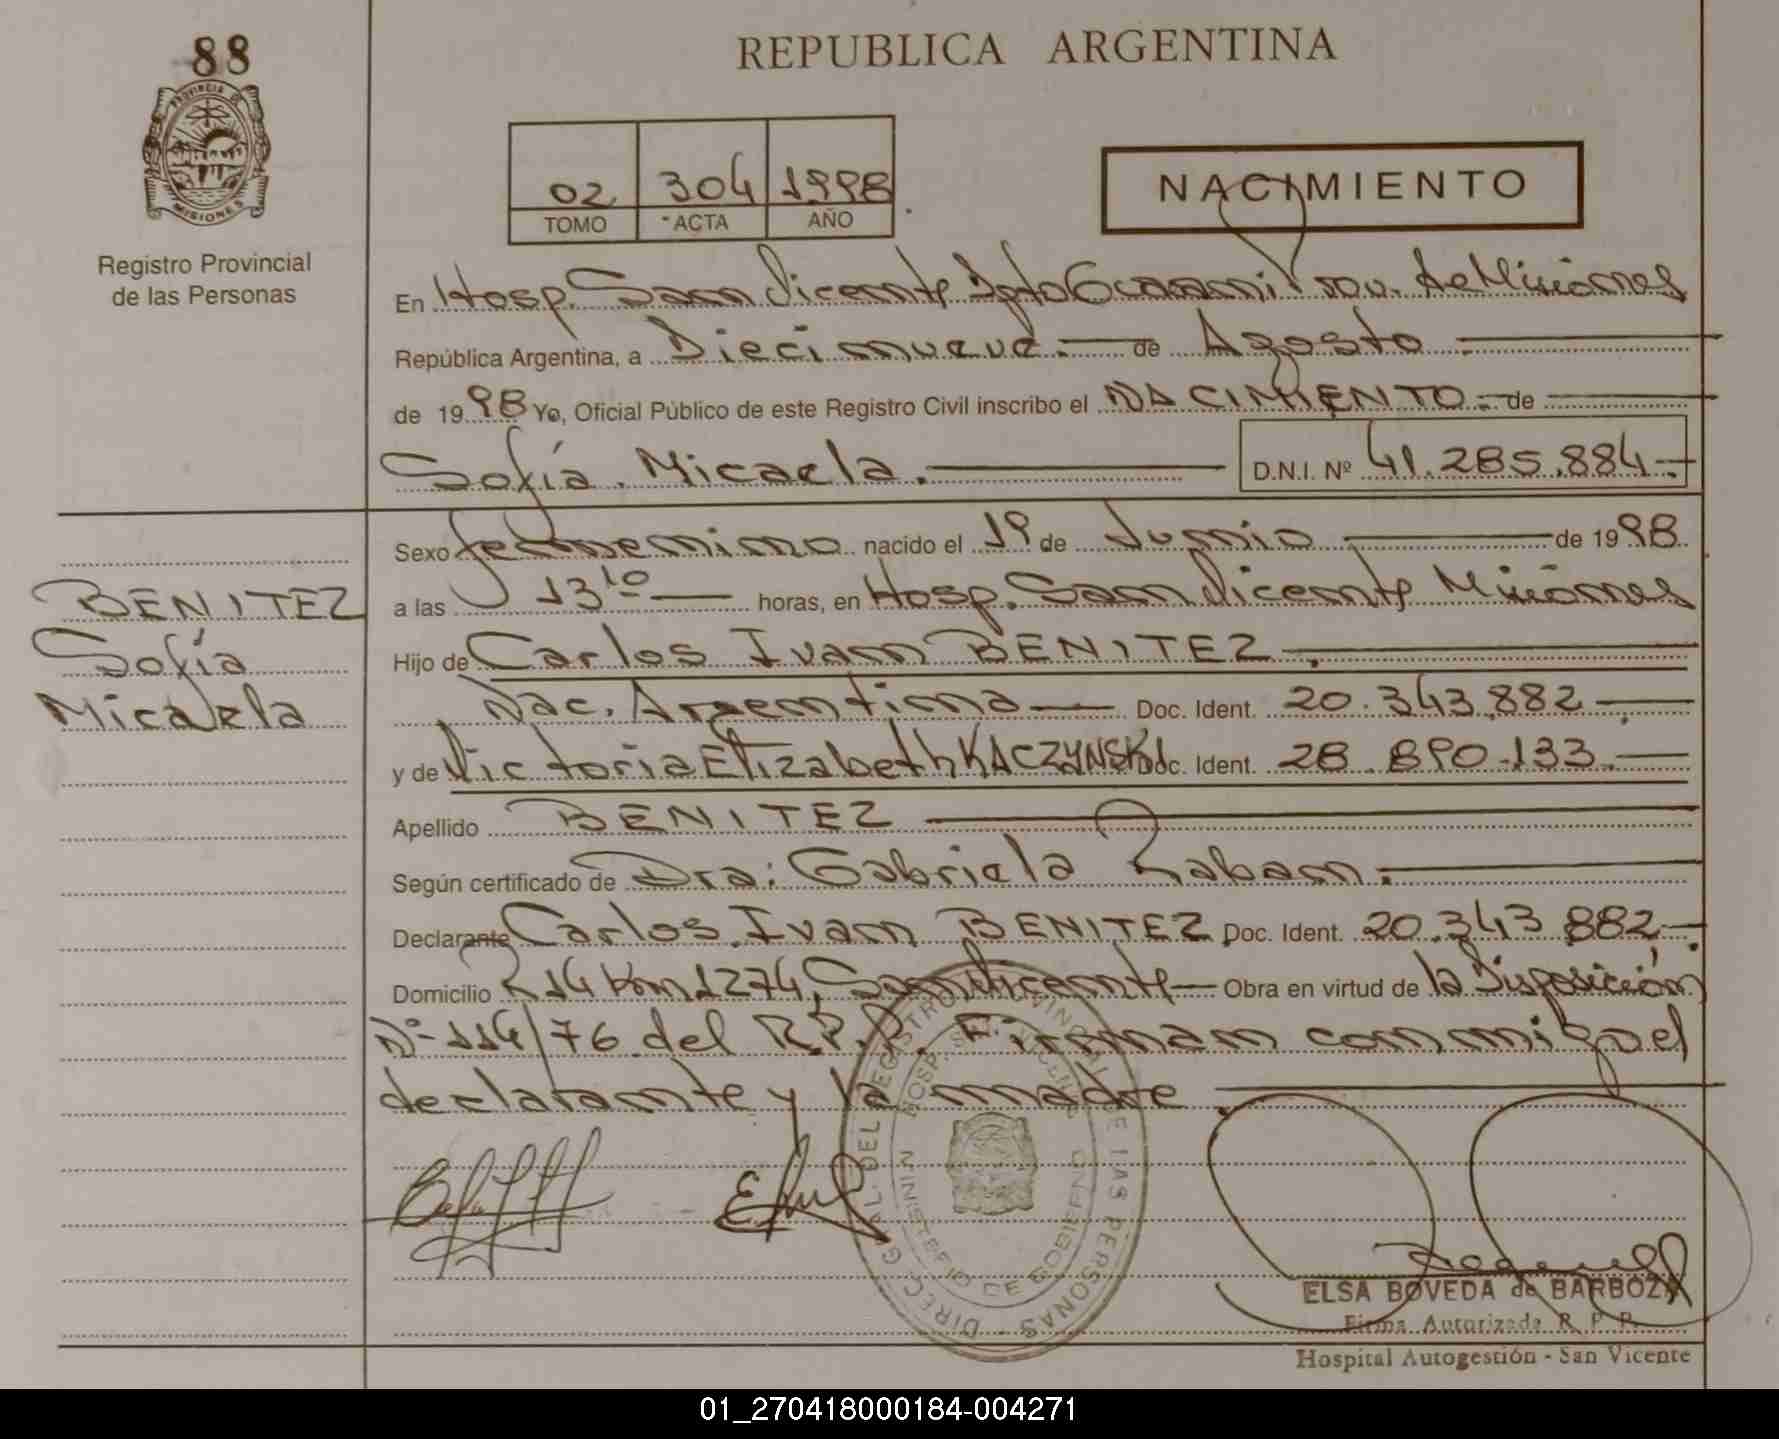 88
PROVINCIA DE
MISIONES
Registro Provincial
de las Personas
REPUBLICA ARGENTINA
02 304 1998
TOMO ACTA AÑO
NACIMIENTO
En Hosp. San Vicente Dpto Guaraní Prov. de Misiones
República Argentina, a Diecinueve.— de Agosto
de 1998 Yo, Oficial Público de este Registro Civil inscribo el NACIMIENTO.- de
Sofía Micaela. D.N.I. Nº 41.285.884.-
Sexo femenino nacido el 19 de Junio de 1998
a las 13 10 horas, en Hosp. San Vicente Misiones
Hijo de Carlos Ivan BENITEZ.
Nac. Argentina Doc. Ident. 20.343.882.-
y de Victoria Elizabeth KACZYNSKI Doc. Ident. 28.890.133.-
Apellido BENITEZ
Según certificado de Dra: Gabriela Raban.
Declarante Carlos Ivan BENITEZ Doc. Ident. 20.343.882.-
Domicilio R 14 Km 1274, San Vicente Obra en virtud de la Disposición
Nº 114/76 del R.P.P. Firman conmigo el
declarante y la madre.
BENITEZ
Sofía
Micaela
DIREC. GRAL. DEL REGISTRO PROVINCIAL DE LAS PERSONAS
HOSP. SAN VICENTE
MINISTERIO DE GOBIERNO
ELSA BOVEDA de BARBOZA
Firma Autorizada R. P. P.
Hospital Autogestión - San Vicente
01_270418000184-004271